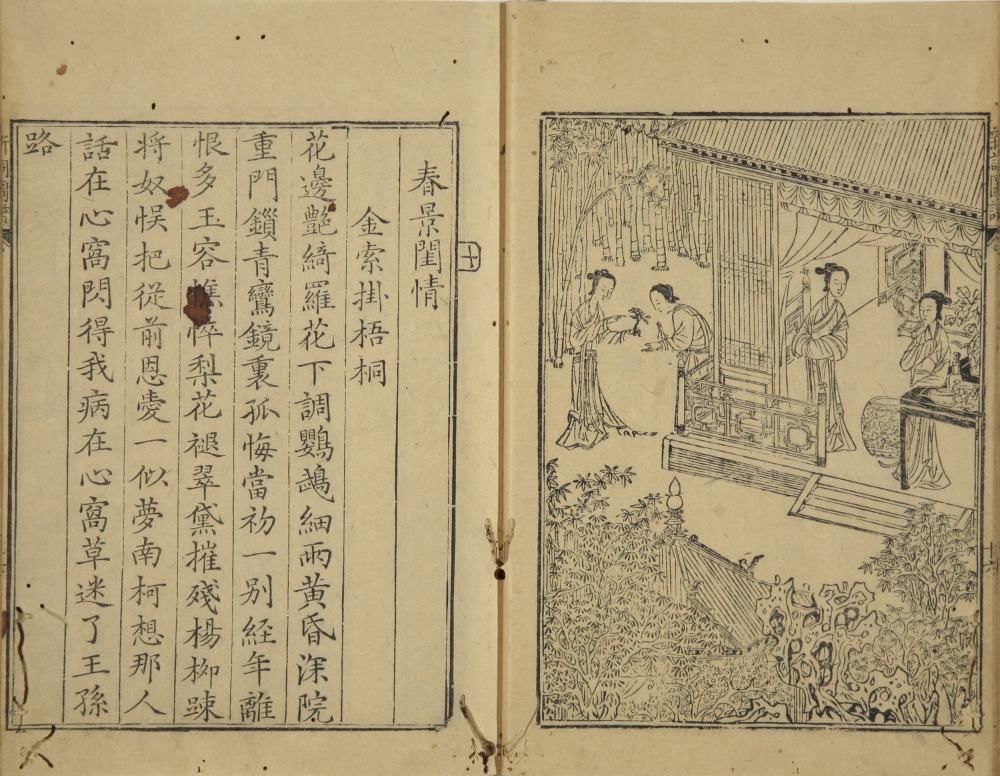 春景閨情
金索掛梧桐
花邊艷綺羅花下調鸚鵡細雨黃昏深院
重門鎖青鸞鏡裏孤悔當初一别經年離
恨多玉容憔悴梨花褪翠黛摧殘楊柳踈
将奴悮把從前恩愛一似夢南柯想那人
話在心窩閃得我病在心窩草迷了王孫
路